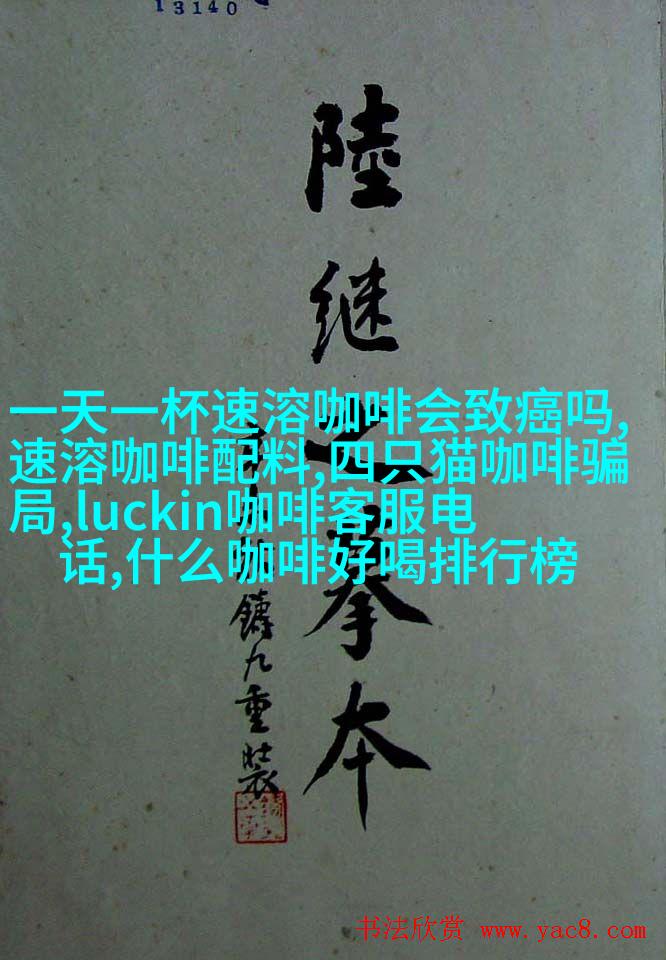 13140
陸继之摹本
鑄九重裝
一天一杯速溶咖啡会致癌吗,
速溶咖啡配料,四只猫咖啡骗
局,luckin咖啡客服电
话,什么咖啡好喝排行榜
书法欣赏 www.yac8.com